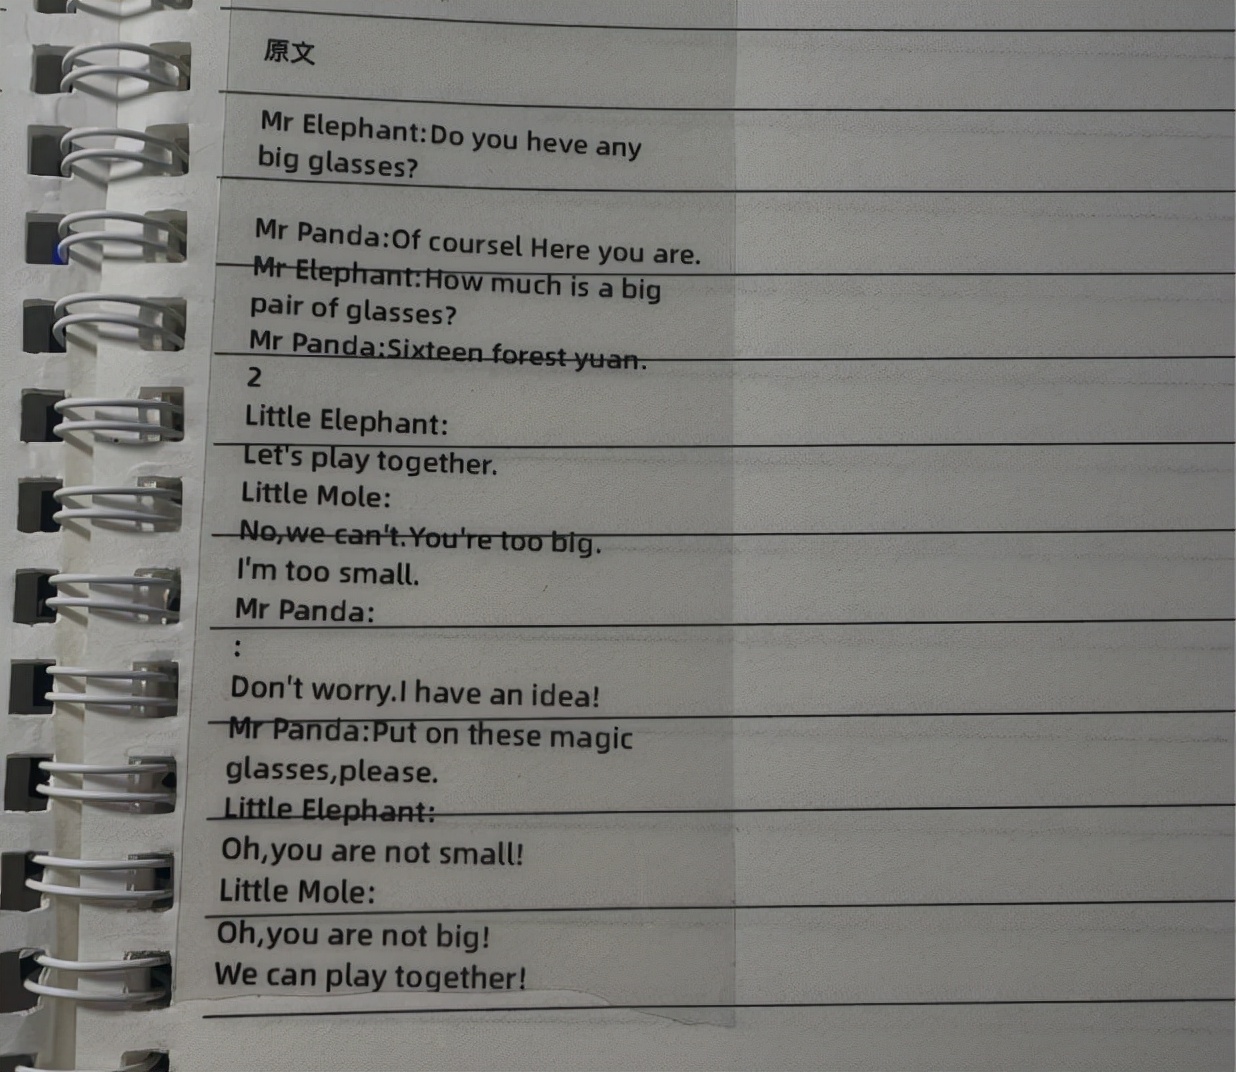 原文
Mr Elephant:Do you heve any
big glasses?
Mr Panda:Of coursel Here you are.
Mr Elephant:How much is a big
pair of glasses?
Mr Panda:Sixteen forest yuan.
2
Little Elephant:
Let's play together.
Little Mole:
No,we can't.You're too big.
I'm too small.
Mr Panda:
:
Don't worry.I have an idea!
Mr Panda:Put on these magic
glasses,please.
Little Elephant:
Oh,you are not small!
Little Mole:
Oh,you are not big!
We can play together!